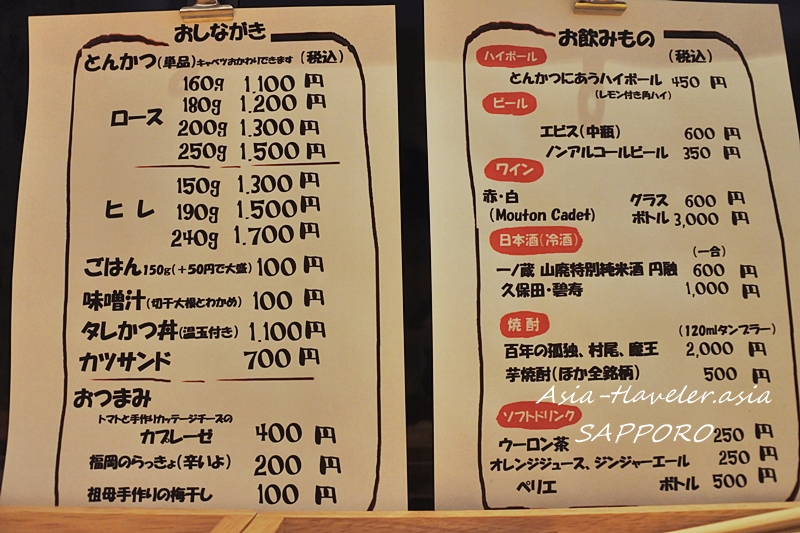 おしながき
とんかつ(単品)キャベツおかわりできます (税込)
ロース
160g 1,100円
180g 1,200円
200g 1,300円
250g 1,500円
ヒレ
150g 1,300円
190g 1,500円
240g 1,700円
ごはん150g(+50円で大盛) 100円
味噌汁(切干大根とわかめ) 100円
タレかつ丼(温玉付き) 1,100円
カツサンド 700円
おつまみ
トマトと手作りカッテージチーズの
カプレーゼ 400円
福岡のらっきょ(辛いよ) 200円
祖母手作りの梅干し 100円
お飲みもの
ハイボール (税込)
とんかつにあうハイボール 450円
(レモン付き角ハイ)
ビール
エビス(中瓶) 600円
ノンアルコールビール 350円
ワイン
赤・白 グラス 600円
(Mouton Cadet) ボトル 3,000円
日本酒(冷酒)
(一合)
一ノ蔵 山廃特別純米酒 円融 600円
久保田・碧寿 1,000円
焼酎 (120mlタンブラー)
百年の孤独、村尾、魔王 2,000円
芋焼酎(ほか全銘柄) 500円
Asia-Traveler.asia
ソフトドリンク
SAPPORO
ウーロン茶 250円
オレンジジュース、ジンジャーエール 250円
ペリエ ボトル 500円